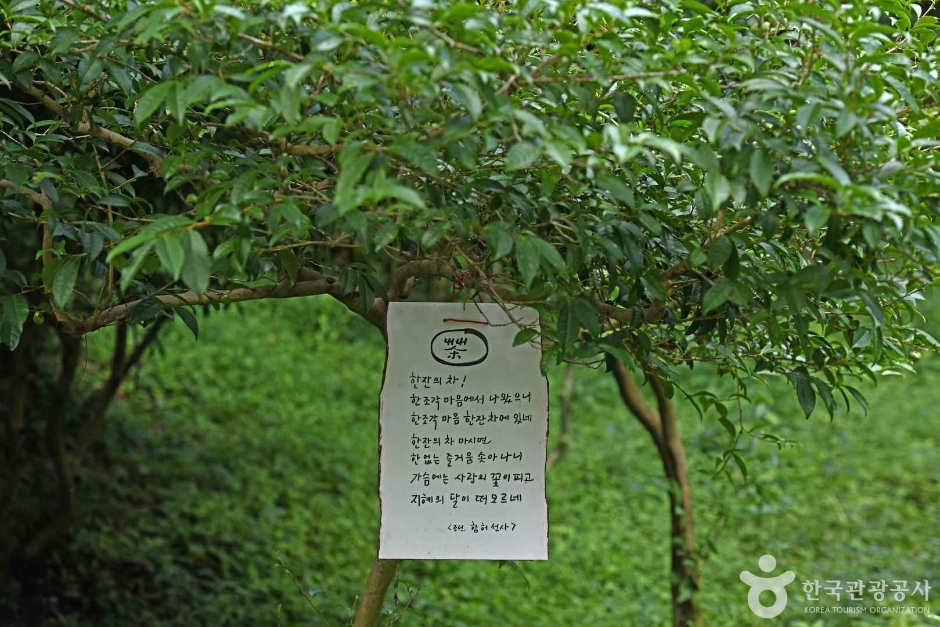 한잔의 차!
한조각 마음에서 나왔으니
한조각 마음 한잔차에 있네
한잔의 차 마시면
한없는 즐거움 솟아나니
가슴에는 사랑의 꽃이피고
지혜의 달이 떠오르네
<조선. 함허선사>
한국관광공사
KOREA TOURISM ORGANIZATION